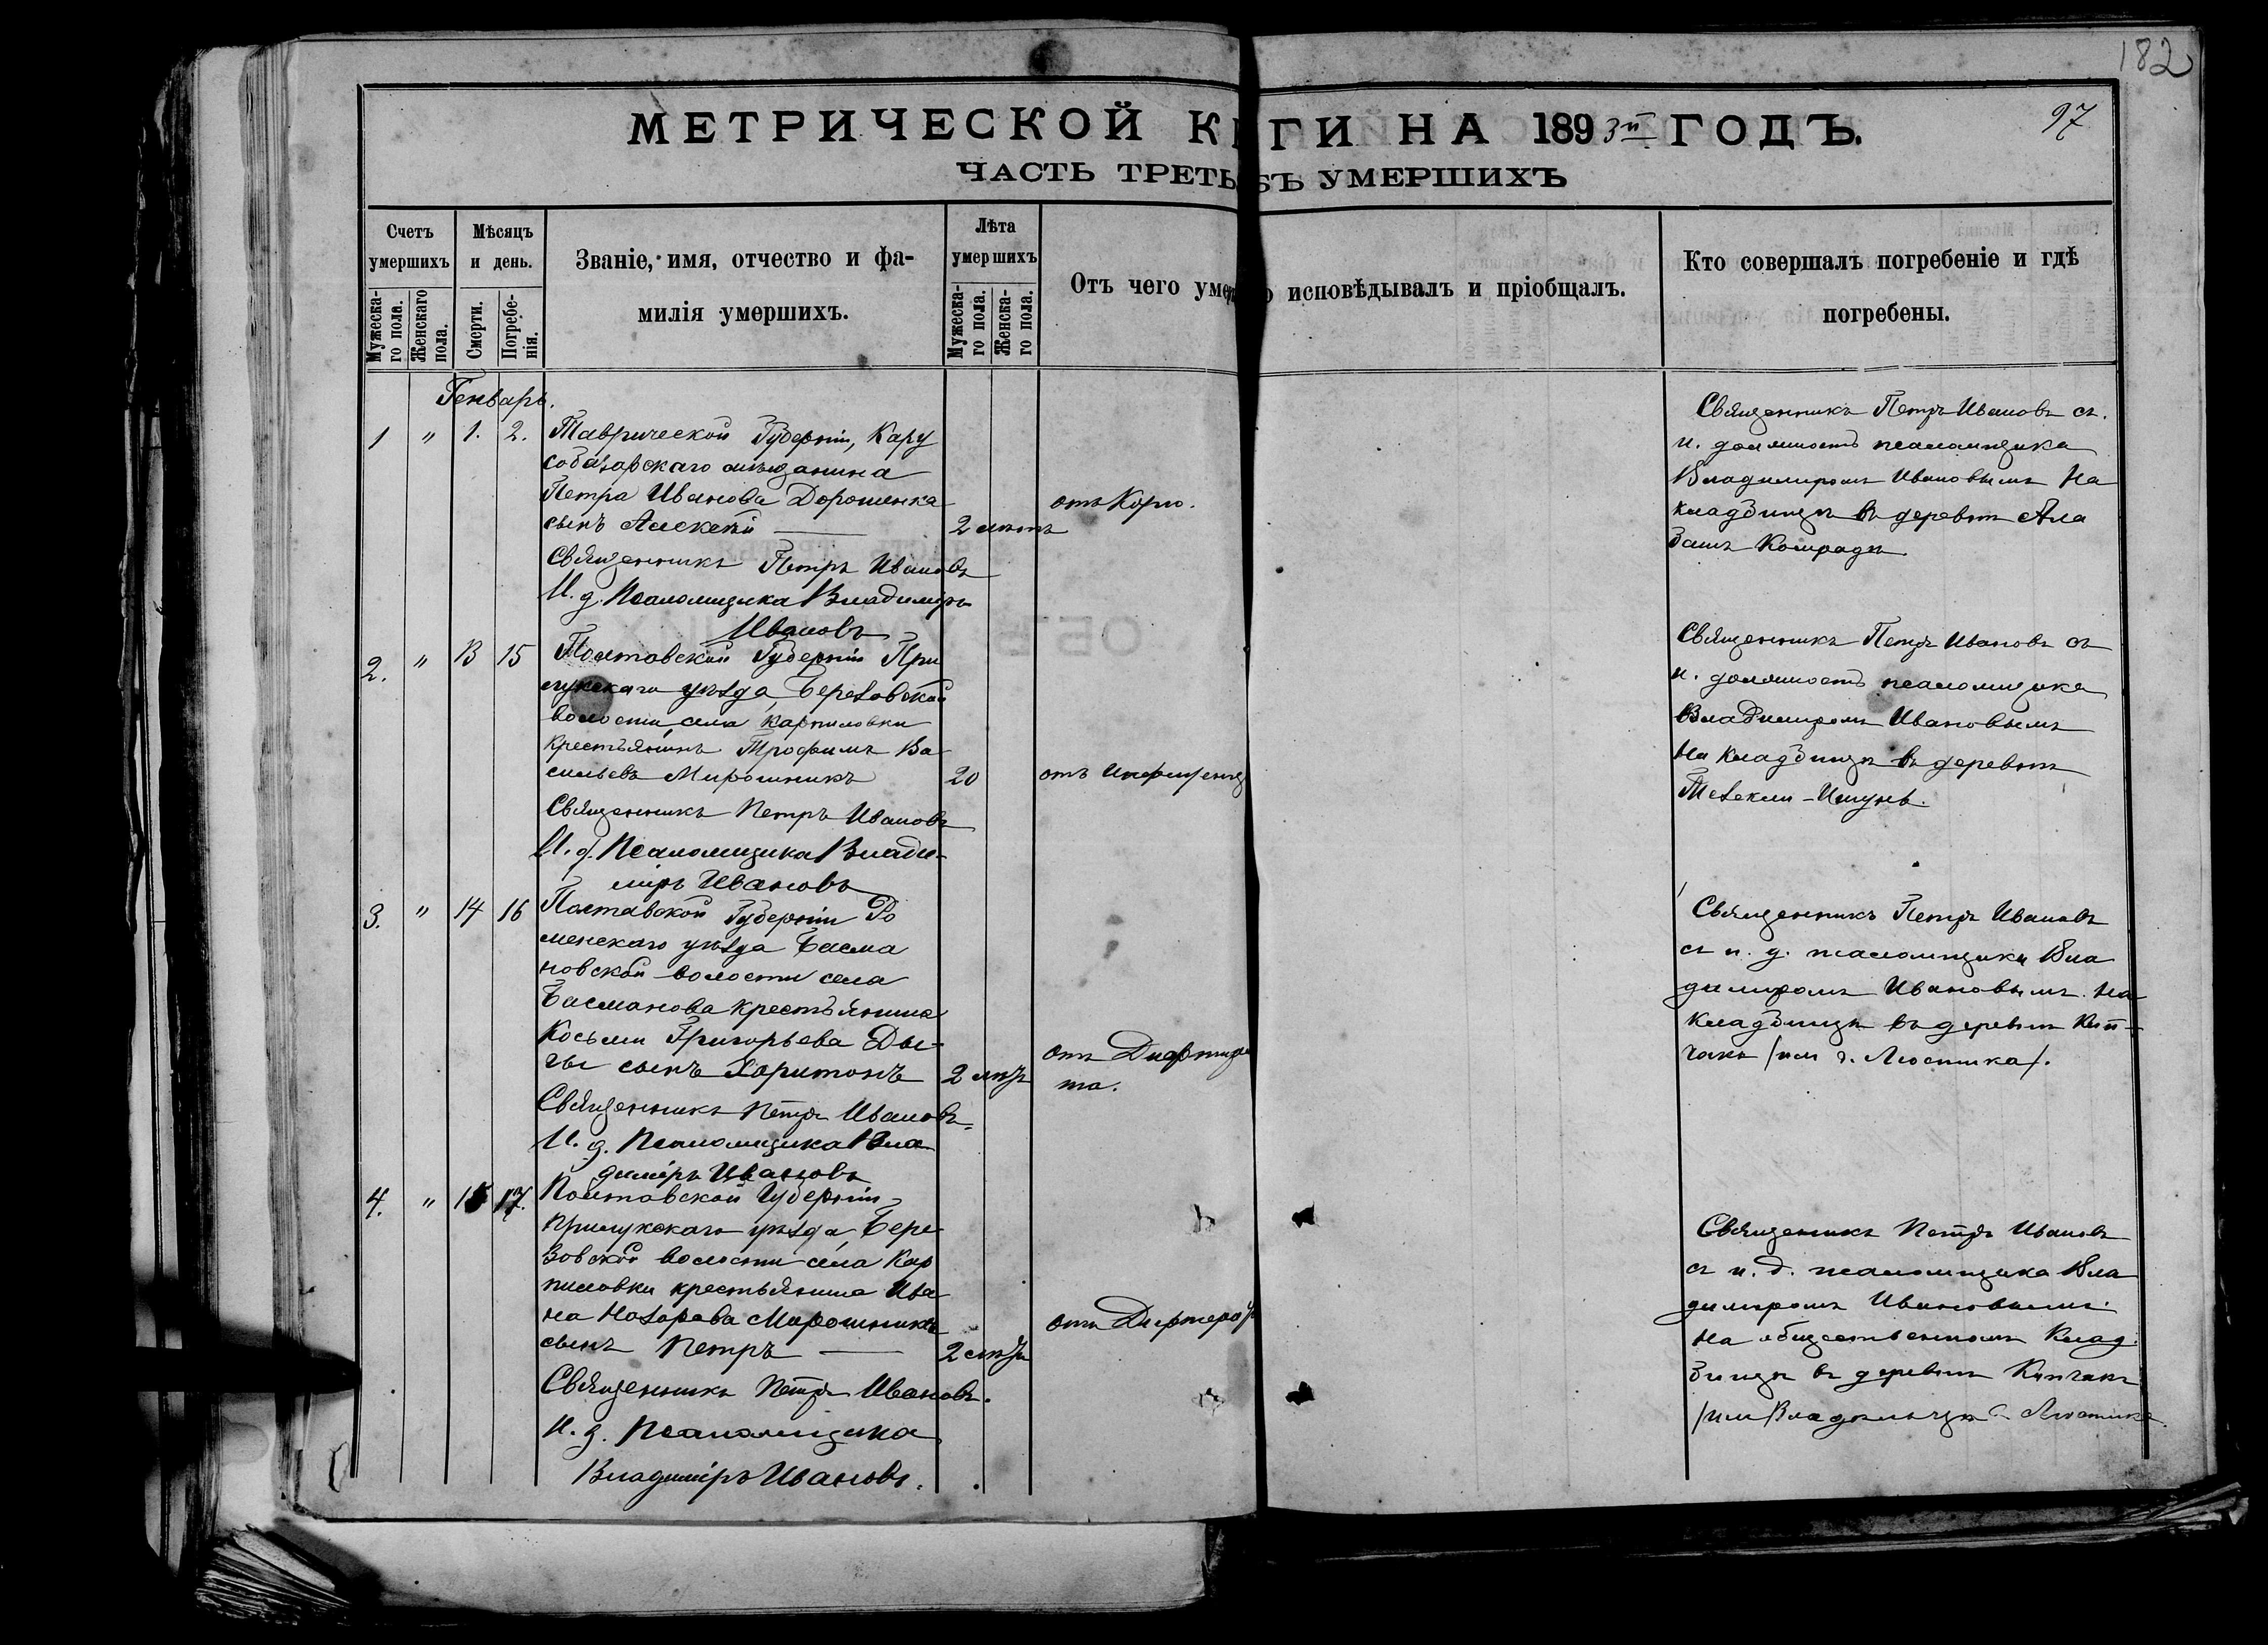 182
97
МЕТРИЧЕСКОЙ К ГИ НА 1893й ГОДЪ.
ЧАСТЬ ТРЕТЬ БЪ УМЕРШИХЪ
Счетъ умершихъ
Мужеска-го пола.
Женскаго пола.
Мѣсяцъ и день.
Смерти.
Погребе-нія.
Званіе, имя, отчество и фа-
милія умершихъ.
Лѣта умершихъ
Мужеска-го пола.
Женска-го пола.
Отъ чего умер
исповѣдывалъ и пріобщалъ.
Кто совершалъ погребеніе и гдѣ
погребены.
Генварь.
1 " 1. 2.
Таврической Губерніи, Кару
собазарскаго мѣщанина
Петра Иванова Дорошенка
сынъ Алексѣй —
2 лѣтъ
отъ Кори.
Священникъ Петръ Ивановъ
И. д. Псаломщика Владиміръ
Ивановъ
Священникъ Петръ Ивановъ съ.
и. должность псаломщика
Владиміромъ Ивановымъ На
кладбищѣ въ деревнѣ Ала
башъ Конрадъ
2. " 13 15
Полтавской Губерніи При
лукскаго уѣзда, Березовской
волости, села Карпиловки
крестьянинъ Трофимъ Ва
сильевъ Мирошникъ
20
Священникъ Петръ Ивановъ
И. д. Псаломщика Влади-
міръ Ивановъ
Священникъ Петръ Ивановъ съ
и. должность псаломщика
Владиміромъ Ивановымъ
на кладбищѣ въ деревнѣ
Тезекли-Ишунь.
3. " 14 16
Полтавской Губерніи Ро
менскаго уѣзда Басма
новской волости села
Басманова крестьянина
Косьмы Григорьева Ды-
сынъ Харитонъ
2 лѣтъ
отъ Дифтери
та.
Священникъ Петръ Ивановъ
И. д. Псаломщика Вла
диміръ Ивановъ
Священникъ Петръ Ивановъ
съ и. д. псаломщика Вла
диміромъ Ивановымъ. На
кладбищѣ въ деревнѣ Кип-
чакъ /или г. Люстика/.
4. " 15 17.
Полтавской Губерніи
Прилукскаго уѣзда, Бере
зовской волости села Кар
пиловки крестьянина Ива
на Назарева Мирошника
сынъ Петръ —
2 лѣтъ
отъ Дифтерор
Священникъ Петръ Ивановъ.
И. д. Псаломщика
Владиміръ Ивановъ.
Священникъ Петръ Ивановъ
съ и. д. псаломщика Вла
диміромъ Ивановымъ.
на общественномъ клад.
бищѣ въ деревнѣ Кипчакъ
/или Владѣльца Люстика.